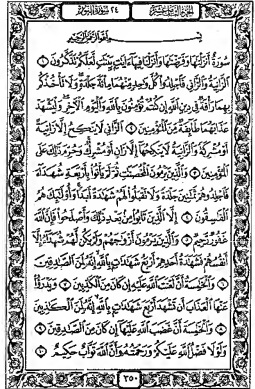 الجزء الثامن عشر ٢٤ سورة النور
بسم الله الرحمن الرحيم
سُورَةٌ أَنزَلْنَٰهَا وَفَرَضْنَٰهَا وَأَنزَلْنَا فِيهَآ ءَايَٰتٍۭ بَيِّنَٰتٍ لَّعَلَّكُمْ تَذَكَّرُونَ ١
ٱلزَّانِيَةُ وَٱلزَّانِى فَٱجْلِدُوا۟ كُلَّ وَٰحِدٍ مِّنْهُمَا مِا۟ئَةَ جَلْدَةٍ وَلَا تَأْخُذْكُم
بِهِمَا رَأْفَةٌ فِى دِينِ ٱللَّهِ إِن كُنتُمْ تُؤْمِنُونَ بِٱللَّهِ وَٱلْيَوْمِ ٱلْءَاخِرِ وَلْيَشْهَدْ
عَذَابَهُمَا طَآئِفَةٌ مِّنَ ٱلْمُؤْمِنِينَ ٢ ٱلزَّانِى لَا يَنكِحُ إِلَّا زَانِيَةً
أَوْ مُشْرِكَةً وَٱلزَّانِيَةُ لَا يَنكِحُهَآ إِلَّا زَانٍ أَوْ مُشْرِكٌ وَحُرِّمَ ذَٰلِكَ عَلَى
ٱلْمُؤْمِنِينَ ٣ وَٱلَّذِينَ يَرْمُونَ ٱلْمُحْصَنَٰتِ ثُمَّ لَمْ يَأْتُوا۟ بِأَرْبَعَةِ شُهَدَآءَ
فَٱجْلِدُوهُمْ ثَمَٰنِينَ جَلْدَةً وَلَا تَقْبَلُوا۟ لَهُمْ شَهَٰدَةً أَبَدًا وَأُو۟لَٰٓئِكَ هُمُ
ٱلْفَٰسِقُونَ ٤ إِلَّا ٱلَّذِينَ تَابُوا۟ مِنۢ بَعْدِ ذَٰلِكَ وَأَصْلَحُوا۟ فَإِنَّ ٱللَّهَ
غَفُورٌ رَّحِيمٌ ٥ وَٱلَّذِينَ يَرْمُونَ أَزْوَٰجَهُمْ وَلَمْ يَكُن لَّهُمْ شُهَدَآءُ إِلَّآ
أَنفُسُهُمْ فَشَهَٰدَةُ أَحَدِهِمْ أَرْبَعُ شَهَٰدَٰتٍۭ بِٱللَّهِ إِنَّهُۥ لَمِنَ ٱلصَّٰدِقِينَ ٦
وَٱلْخَٰمِسَةُ أَنَّ لَعْنَتَ ٱللَّهِ عَلَيْهِ إِن كَانَ مِنَ ٱلْكَٰذِبِينَ ٧ وَيَدْرَؤُا۟
عَنْهَا ٱلْعَذَابَ أَن تَشْهَدَ أَرْبَعَ شَهَٰدَٰتٍۭ بِٱللَّهِ إِنَّهُۥ لَمِنَ ٱلْكَٰذِبِينَ ٨
وَٱلْخَٰمِسَةَ أَنَّ غَضَبَ ٱللَّهِ عَلَيْهَآ إِن كَانَ مِنَ ٱلصَّٰدِقِينَ ٩
وَلَوْلَا فَضْلُ ٱللَّهِ عَلَيْكُمْ وَرَحْمَتُهُۥ وَأَنَّ ٱللَّهَ تَوَّابٌ حَكِيمٌ ١٠
٣٥٠